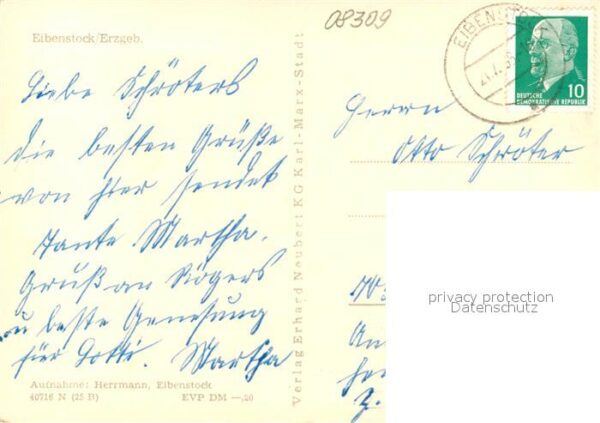 08309
Eibenstock/Erzgeb.
Liebe Schröters
die besten Grüße
von hier sendet
Tante Martha.
Gruß an Rögers
u beste Genesung
für Lotti. Martha
Aufnahme: Herrmann, Eibenstock
40716 N (25 B) EVP DM —,20
Verlag Erhard Neubert KG Karl-Marx-Stadt
EIBENSTOCK
DEUTSCHE
DEMOKRATISCHE REPUBLIK
10
Herrn
Otto Schröter
privacy protection
Datenschutz